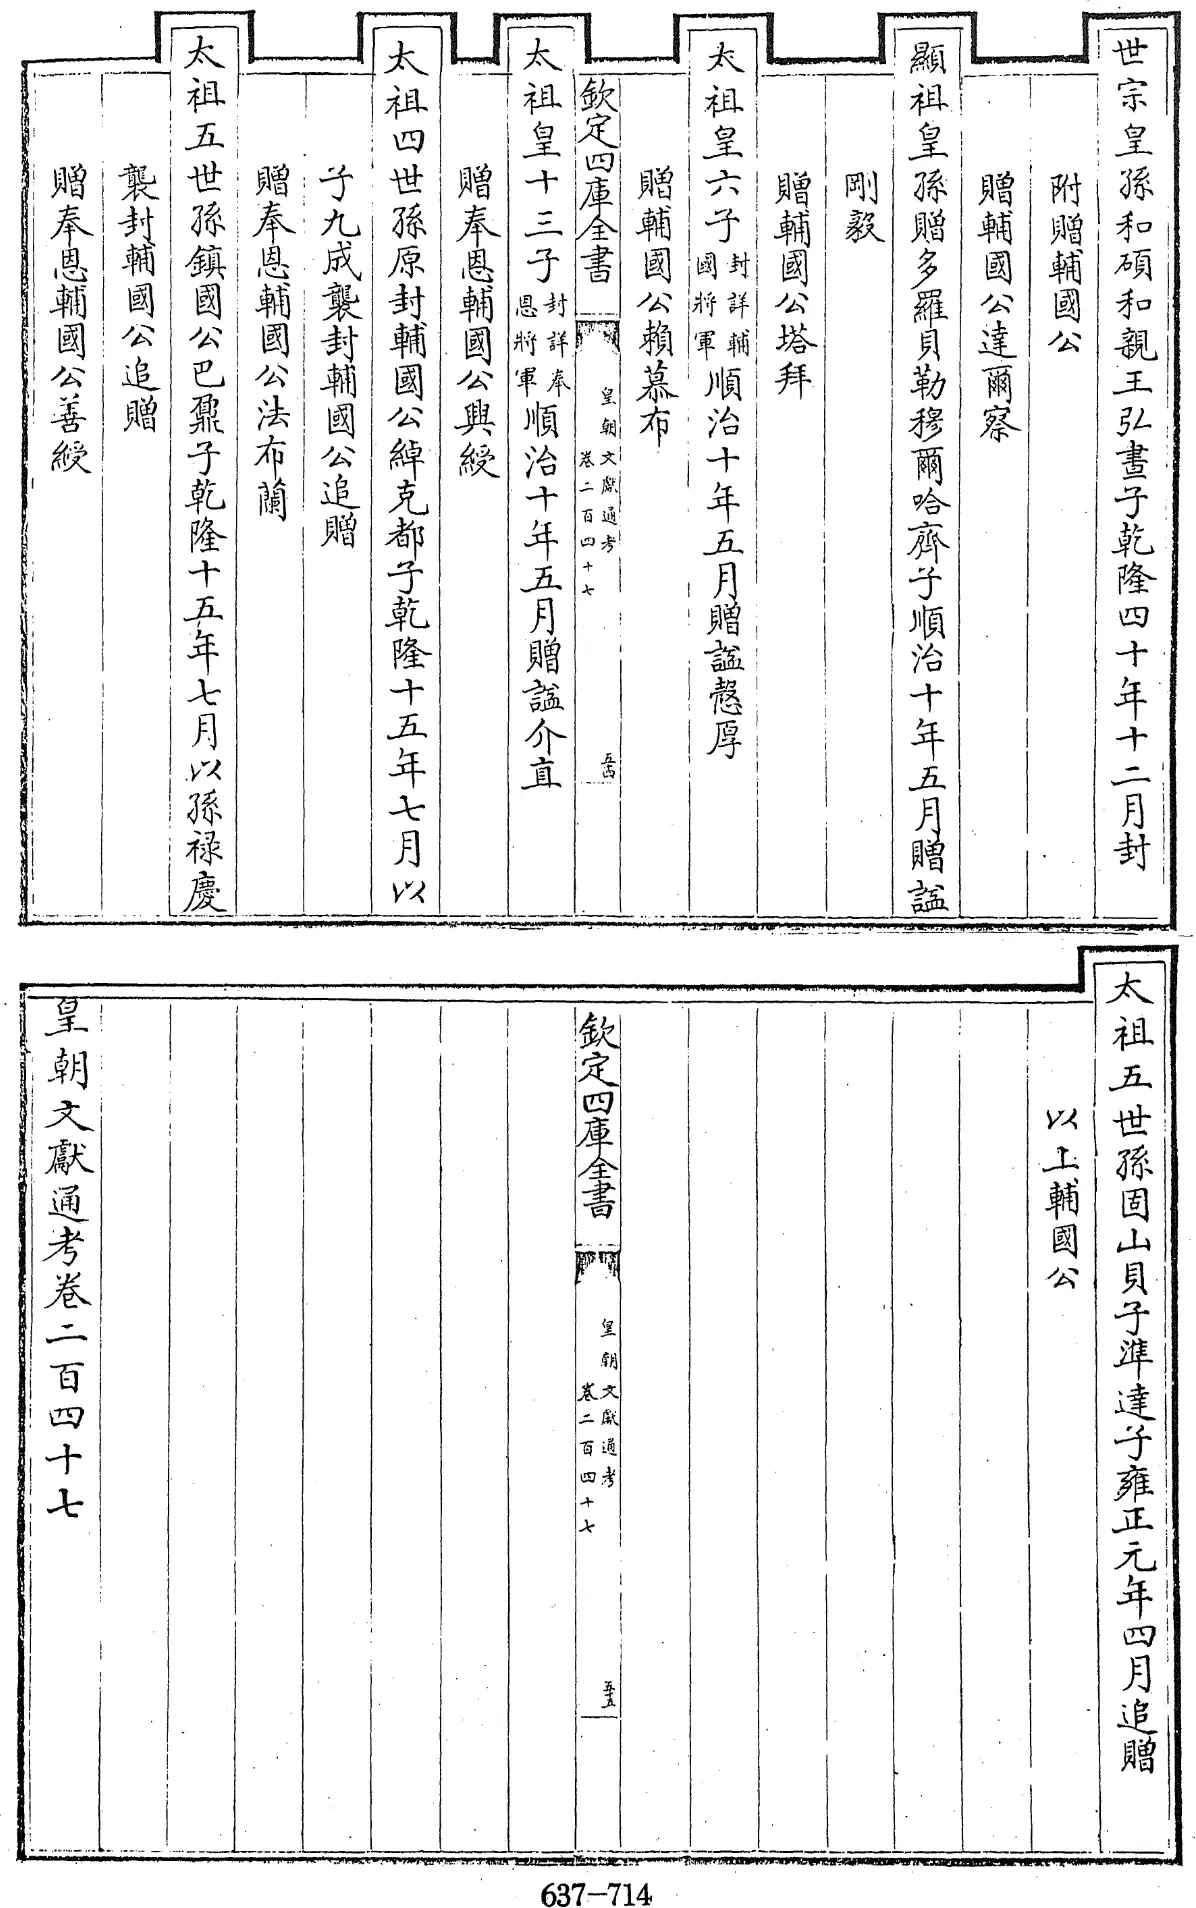 世宗皇孫和碩和親王弘晝子乾隆四十年十二月封
附贈輔國公
贈輔國公達爾察
顯祖皇孫贈多羅貝勒穆爾哈齊子順治十年五月贈諡
剛毅
贈輔國公塔拜
太祖皇六子封詳輔國將軍順治十年五月贈諡慤厚
贈輔國公賴慕布
欽定四庫全書
皇朝文獻通考
卷二百四十七
五十四
太祖皇十三子封詳奉恩將軍順治十年五月贈諡介直
贈奉恩輔國公興綬
太祖四世孫原封輔國公綽克都子乾隆十五年七月以
子九成襲封輔國公追贈
贈奉恩輔國公法布蘭
太祖五世孫鎮國公巴鼐子乾隆十五年七月以孫祿慶
襲封輔國公追贈
贈奉恩輔國公善綬
太祖五世孫固山貝子準達子雍正元年四月追贈
以上輔國公
欽定四庫全書
皇朝文獻通考
卷二百四十七
五十五
皇朝文獻通考卷二百四十七
637-714